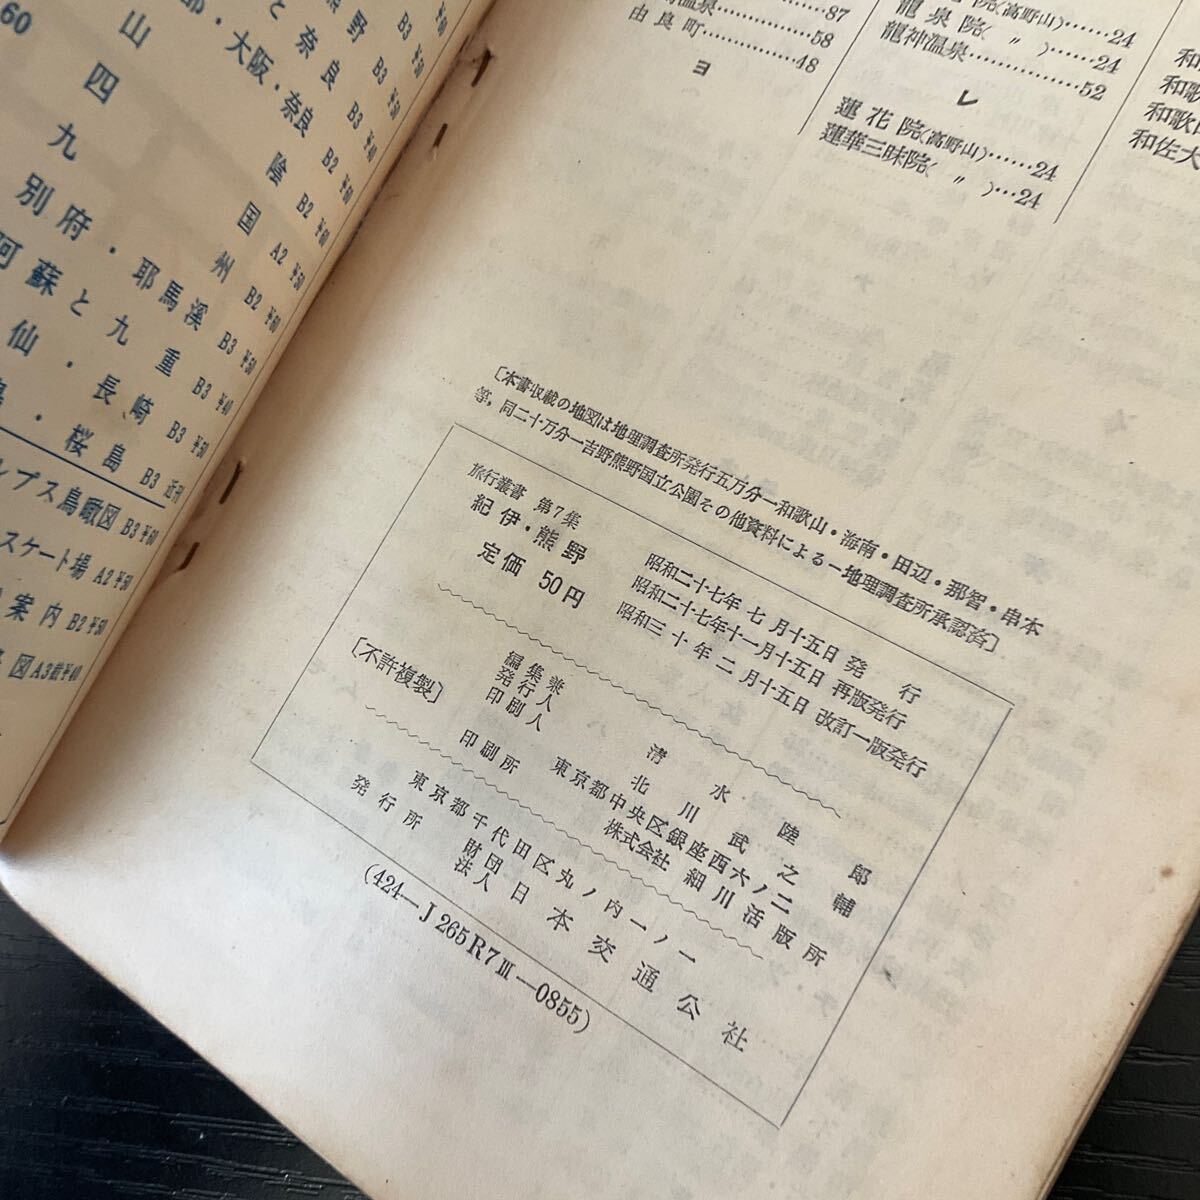 60
熊野 B3 ¥
と奈良 B3 ¥40
・大阪・奈良 B2 ¥60
山陰 B2 ¥60
四国 A2 ¥50
九州 B2 ¥60
別府・耶馬溪 B3 ¥50
阿蘇と九重 B3 ¥40
仙・長崎 B3 ¥50
・桜島 B3 近刊
プス鳥瞰図 B3 ¥60
スケート場 A2 ¥50
案内 B2 ¥50
図 A3 ¥40
温泉………87
由良町………58
48
ヨ
院(高野山)……24
龍泉院(〃)……24
龍神温泉………52
レ
蓮花院(高野山)……24
蓮華三昧院(〃)…24
和
和歌
和歌
和佐大
〔本書収載の地図は地理調査所発行五万分一和歌山・海南・田辺・那智・串本
等，同二十万分一吉野熊野国立公園その他資料による—地理調査所承認済〕
旅行叢書 第7集
紀伊・熊野
定価 50円
昭和二十七年七月十五日 発行
昭和二十七年十一月十五日 再版発行
昭和三十年二月十五日 改訂一版発行
〔不許複製〕
編集兼
発行人 清水陸郎
印刷人 北川武之輔
印刷所 東京都中央区銀座西六ノ二
株式会社 細川活版所
東京都千代田区丸ノ内一ノ一
発行所 財団法人 日本交通公社
(424—J 265 R7 Ⅲ—0855)